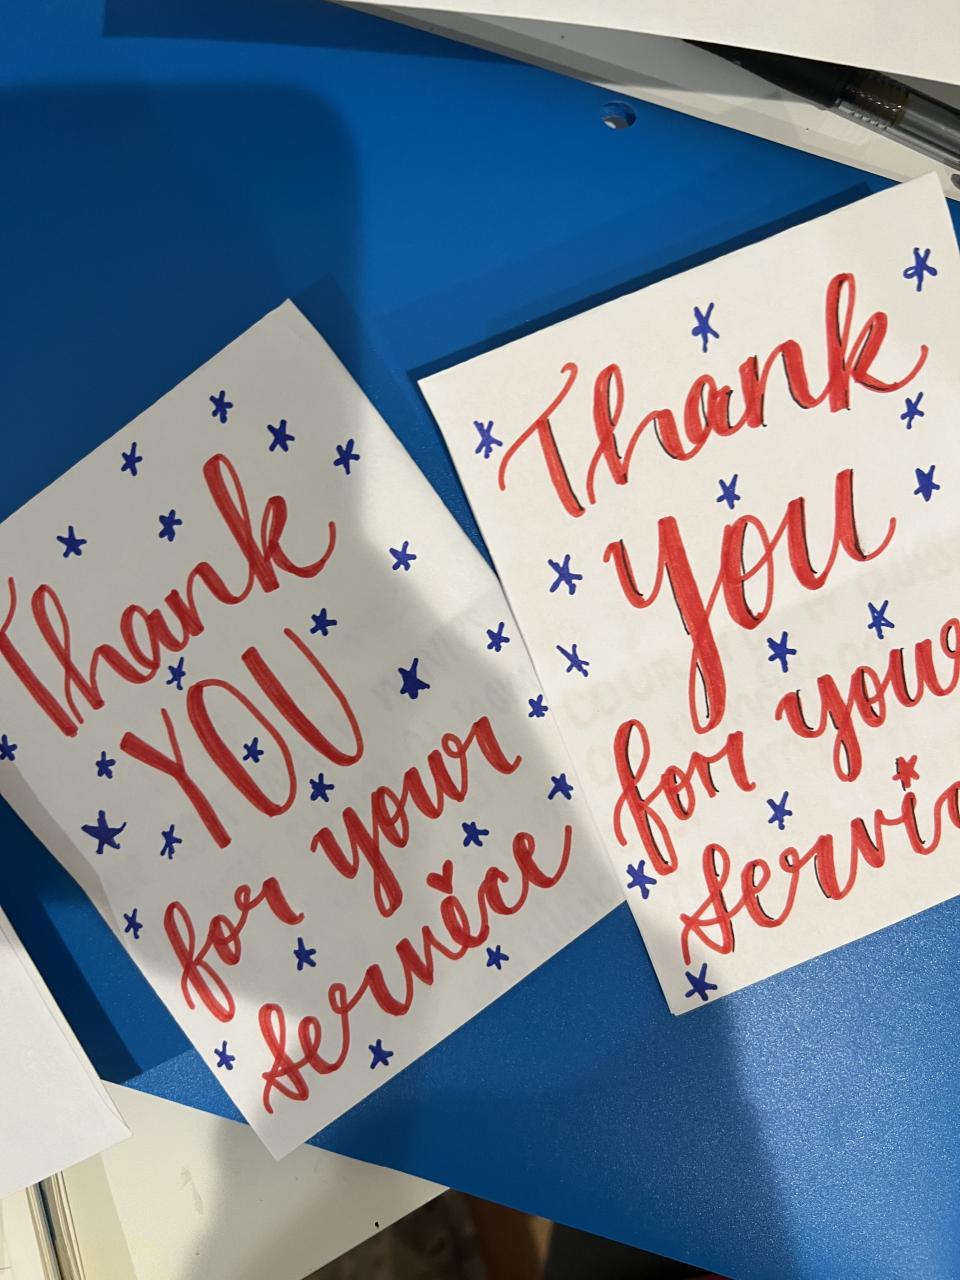 Thank
YOU
for your
service
Thank
you
for your
servic